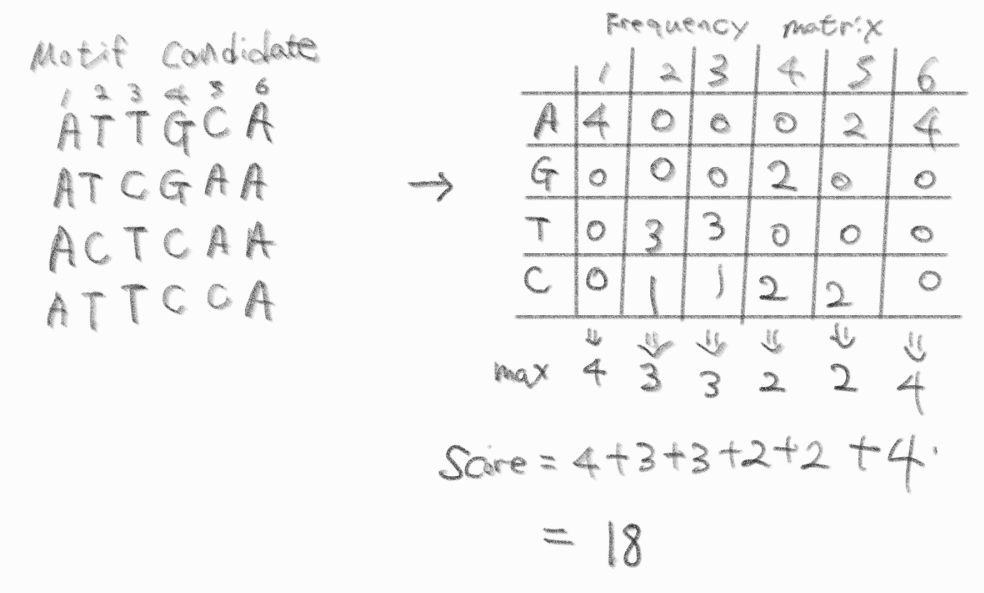 Motif Candidate
1 2 3 4 5 6
A T T G C A
A T C G A A
A C T C A A
A T T C C A
→
Frequency matrix
1 2 3 4 5 6
A 4 0 0 0 2 4
G 0 0 0 2 0 0
T 0 3 3 0 0 0
C 0 1 1 2 2 0
⇓ ⇓ ⇓ ⇓ ⇓ ⇓
max 4 3 3 2 2 4
Score = 4+3+3+2+2+4
= 18